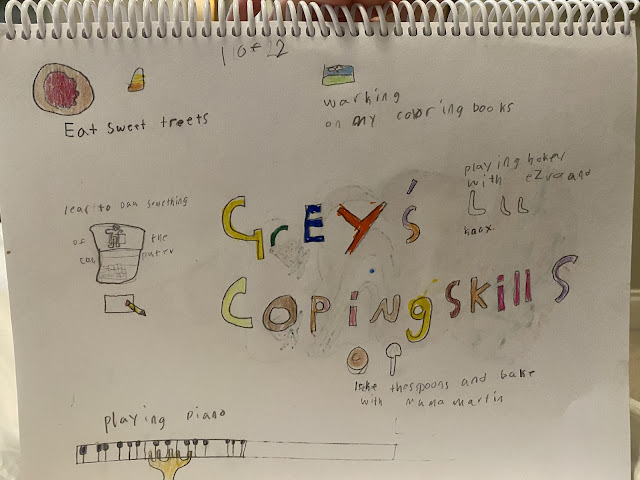 1 of 2
Eat sweet treets
warking
on my coloring books
playing hokey
with eZra and
knox
lear to Daw something
of the
com puter
Grey's
Coping skills
like thespoons and bake
with mama martin
playing piano